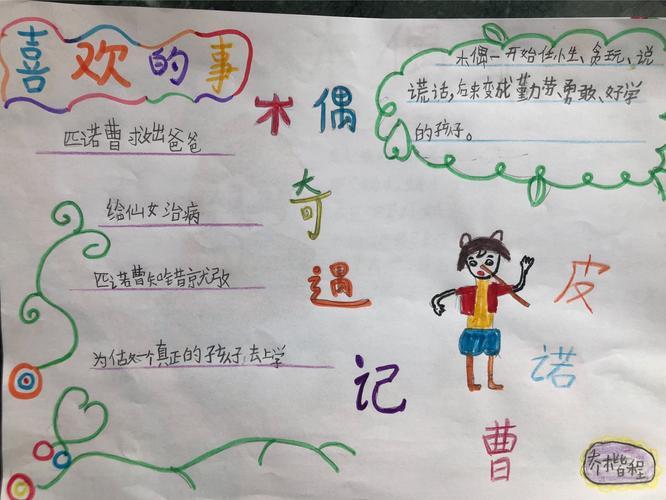 喜欢的事
木偶奇遇记
木偶一开始任小生、贪玩、说
谎话,后来变成勤力劳、勇敢、好学
的孩子。
匹诺曹救出爸爸
给仙女治病
匹诺曹知错就改
为做一个真正的孩子,去上学
皮诺曹
乔楷程